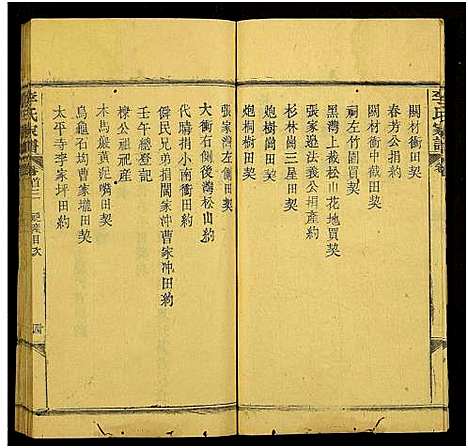 李氏家譜
關材衝田契
春芳公捐契
關材衝中截田契
祠左竹園買契
黑灣上截松山花地買契
張家邉法義公捐產約
杉林崗三星田契
炮樹崗田契
炮桐樹田契
張家灣左側田契
大衝右側後灣松山約
代賜捐小南衝田約
僯民兄弟捐閻家冲曹家冲田約
壬午總登記
樑公祖祀產
木馬㙩黃范嘴田契
烏龜石坳曹家壠田契
太平寺李家坪田約
李氏家譜
卷首三
祀產目次
四